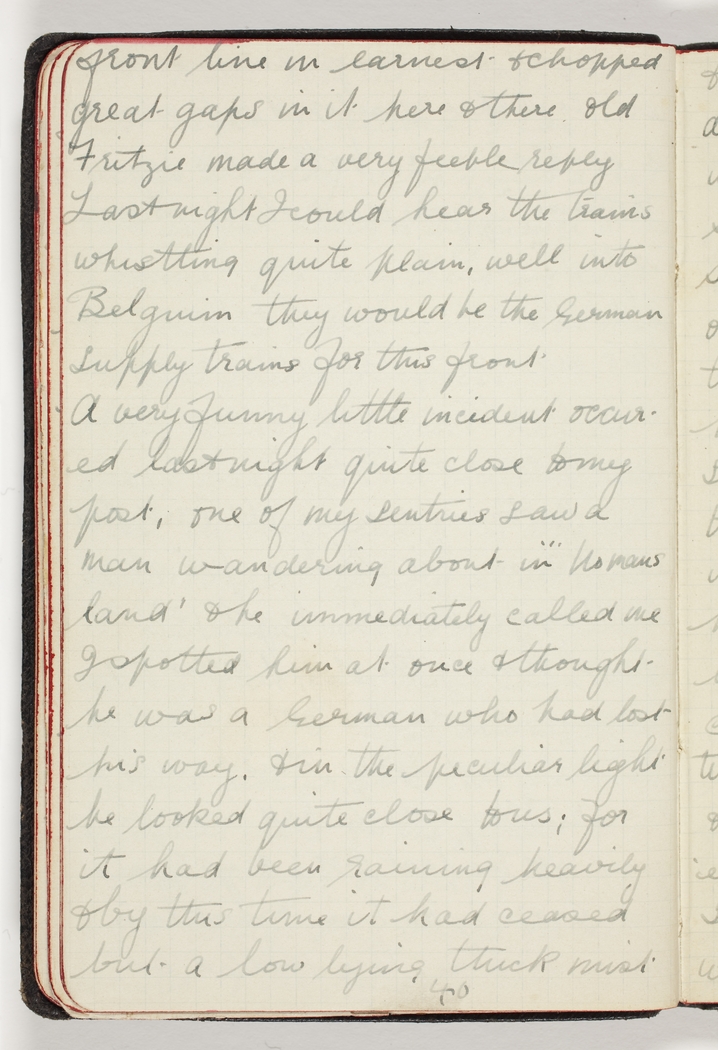 front line in earnest & chopped
great gaps in it here & there. Old
Fritzie made a very feeble reply
Last night I could hear the trains
whistling quite plain, well into
Belguim they would be the German
supply trains for this front.
A very funny little incident occur-
ed last night quite close to my
post, one of my sentries saw a
man wandering about in "No mans
land' & he immediately called me
I spotted him at once & thought
he was a German who had lost
his way. & in the peculiar light
he looked quite close to us; for
it had been raining heavily
& by this time it had ceased
but a low lying thick mist
40